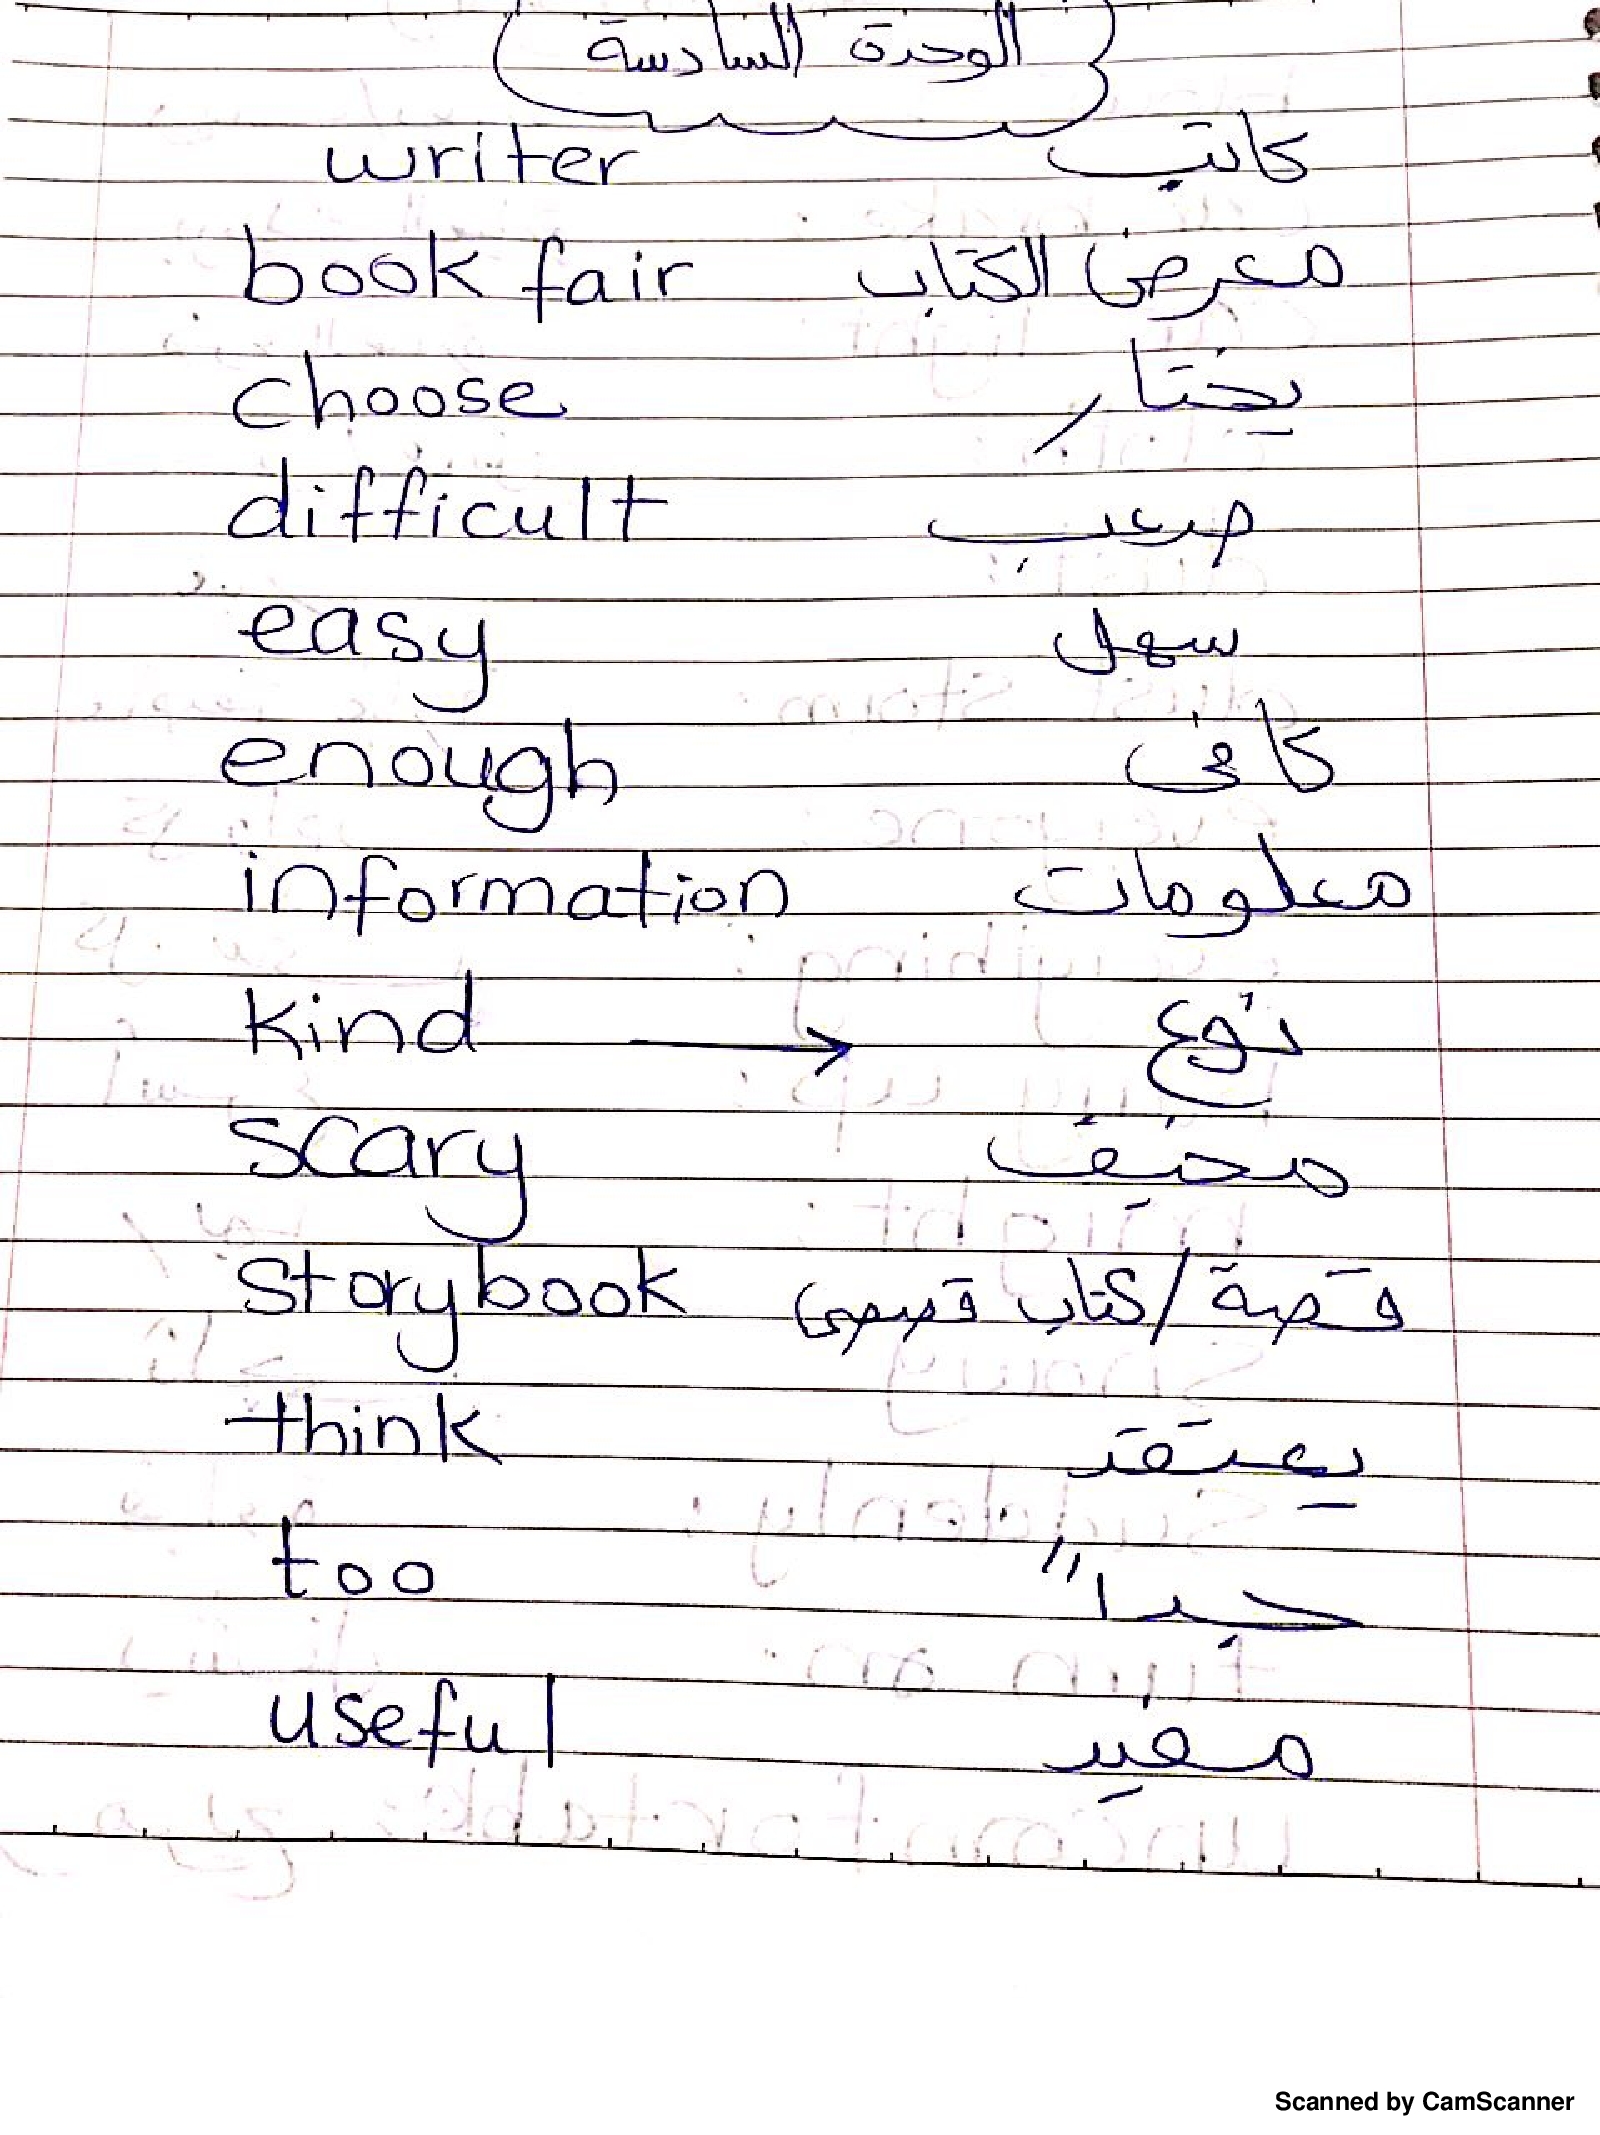 الوحدة السادسة
writer كاتب
book fair معرض الكتاب
choose يختار
difficult صعب
easy سهل
enough كافى
information معلومات
kind → نوع
scary مخيف
storybook قصة / كتاب قصصى
think يعتقد
too جداً
useful مفيد
Scanned by CamScanner